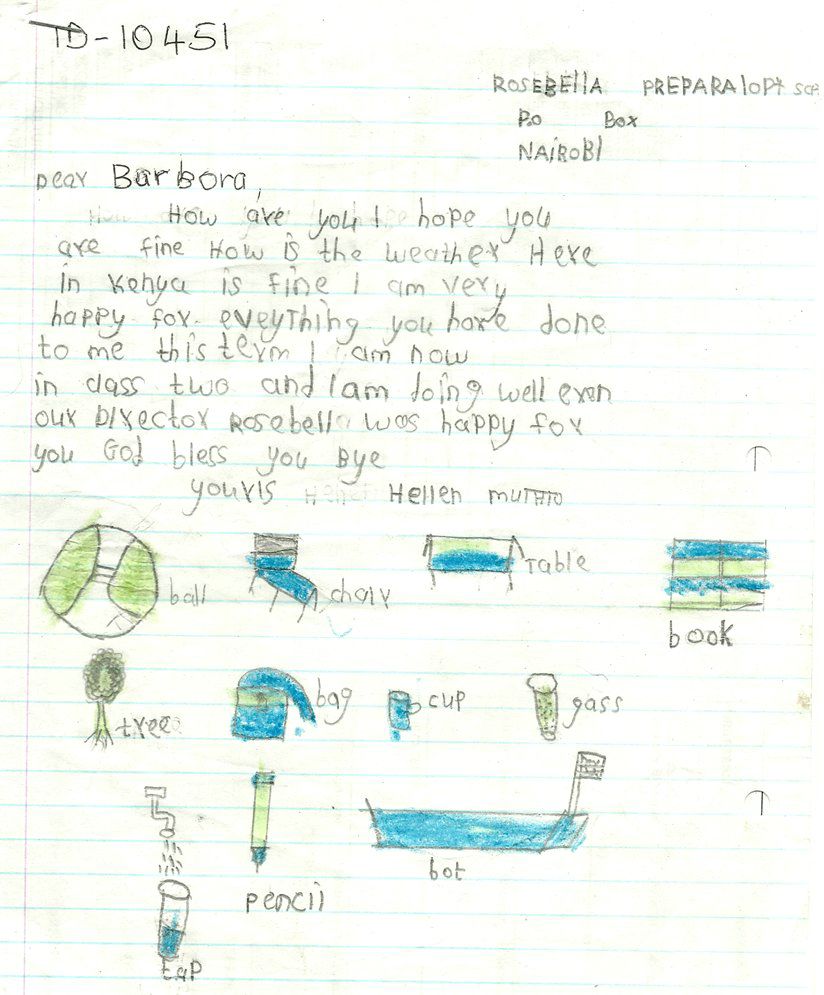 ID-10451
ROSEBElla PREPARAlOPt SCH
P.o Box
NAiROBI
Dear Barbora,
How are you I hope you
are fine How is the weather Here
in Kenya is fine I am very
happy for eveyThing you have done
to me this term I am now
in class two and I am doing well even
our Director Rosebell was happy for
you God bless you Bye
youris Hellen
ball chair Table
book
tree bag cup gass
pencil
bot
tap